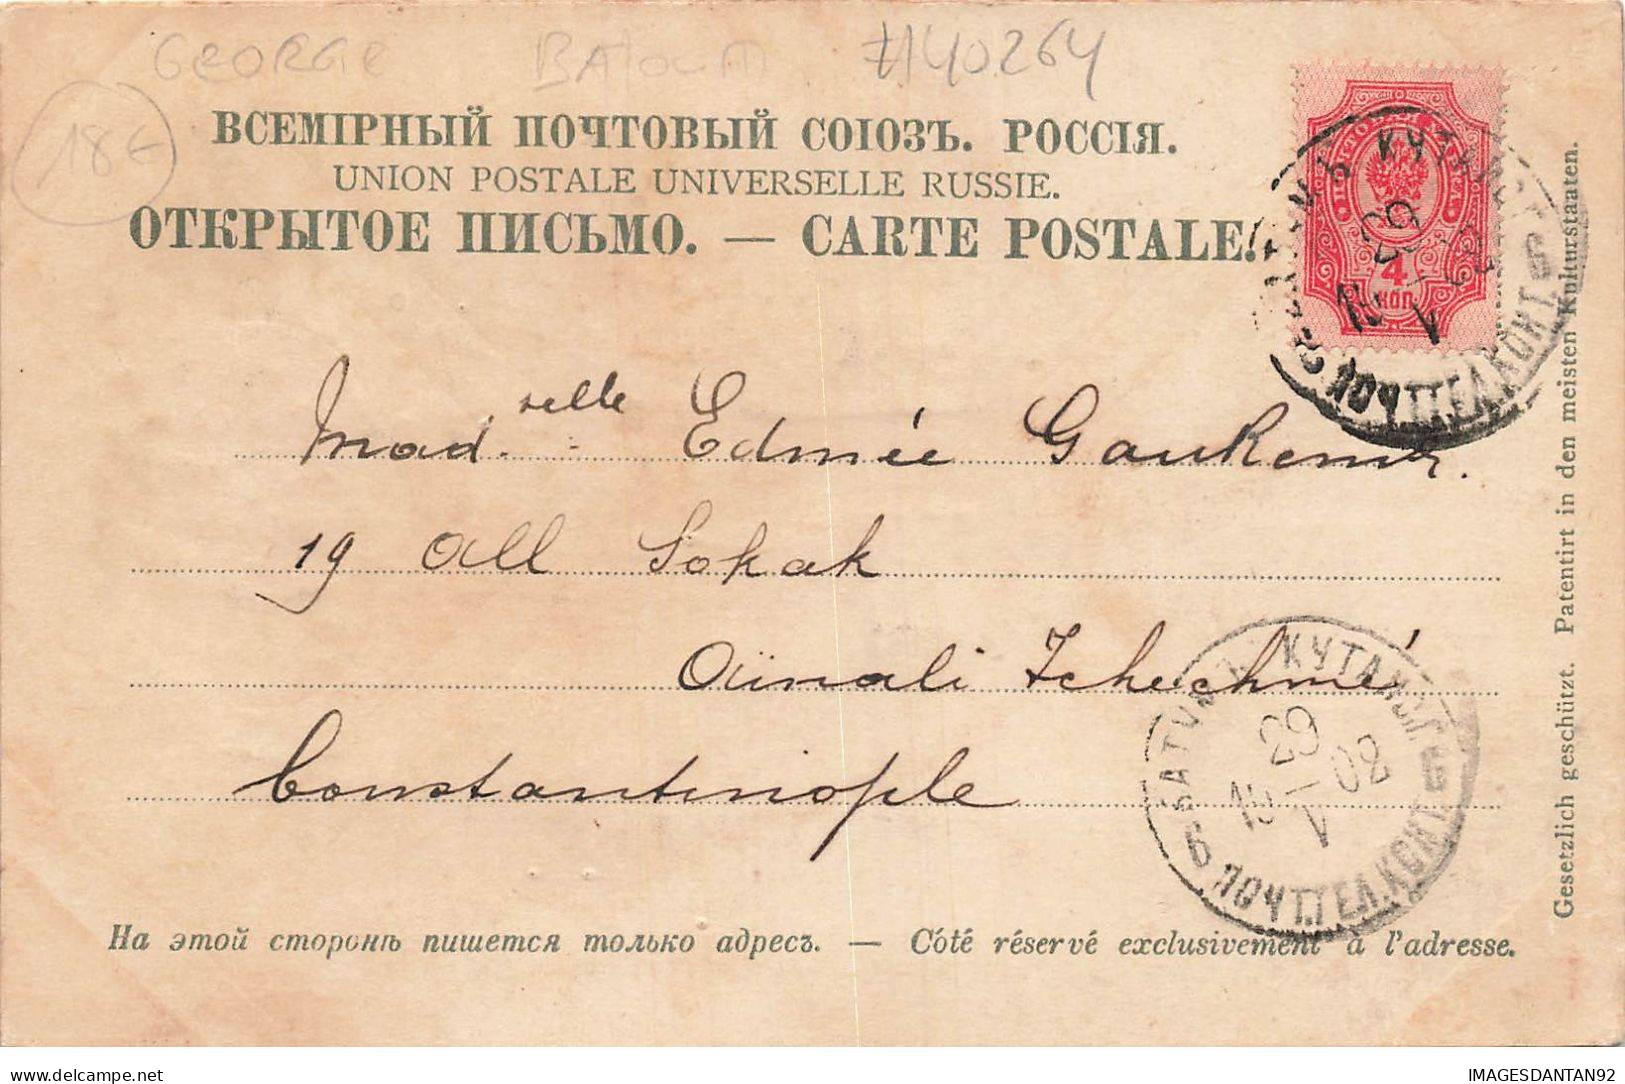 GEORGIE BATOUM #140264
18€
ВСЕМІРНЫЙ ПОЧТОВЫЙ СОЮЗЪ. РОССІЯ.
UNION POSTALE UNIVERSELLE RUSSIE.
ОТКРЫТОЕ ПИСЬМО. — CARTE POSTALE.
4
КОП
БАТУМЪ КУТАИС. Г.
29
15 V 02
ПОЧТ.ТЕЛ.КОНТ. Б
Mad.selle Edmée
19 Oll Sokak
Aïnali Tchechmé
Constantinople
БАТУМЪ КУТАИС. Г.
29
15 V 02
Б ПОЧТ.ТЕЛ.КОНТ. Б
На этой сторонѣ пишется только адресъ. — Côté réservé exclusivement à l'adresse.
Gesetzlich geschützt. Patentirt in den meisten Kulturstaaten.
IMAGESDANTAN92